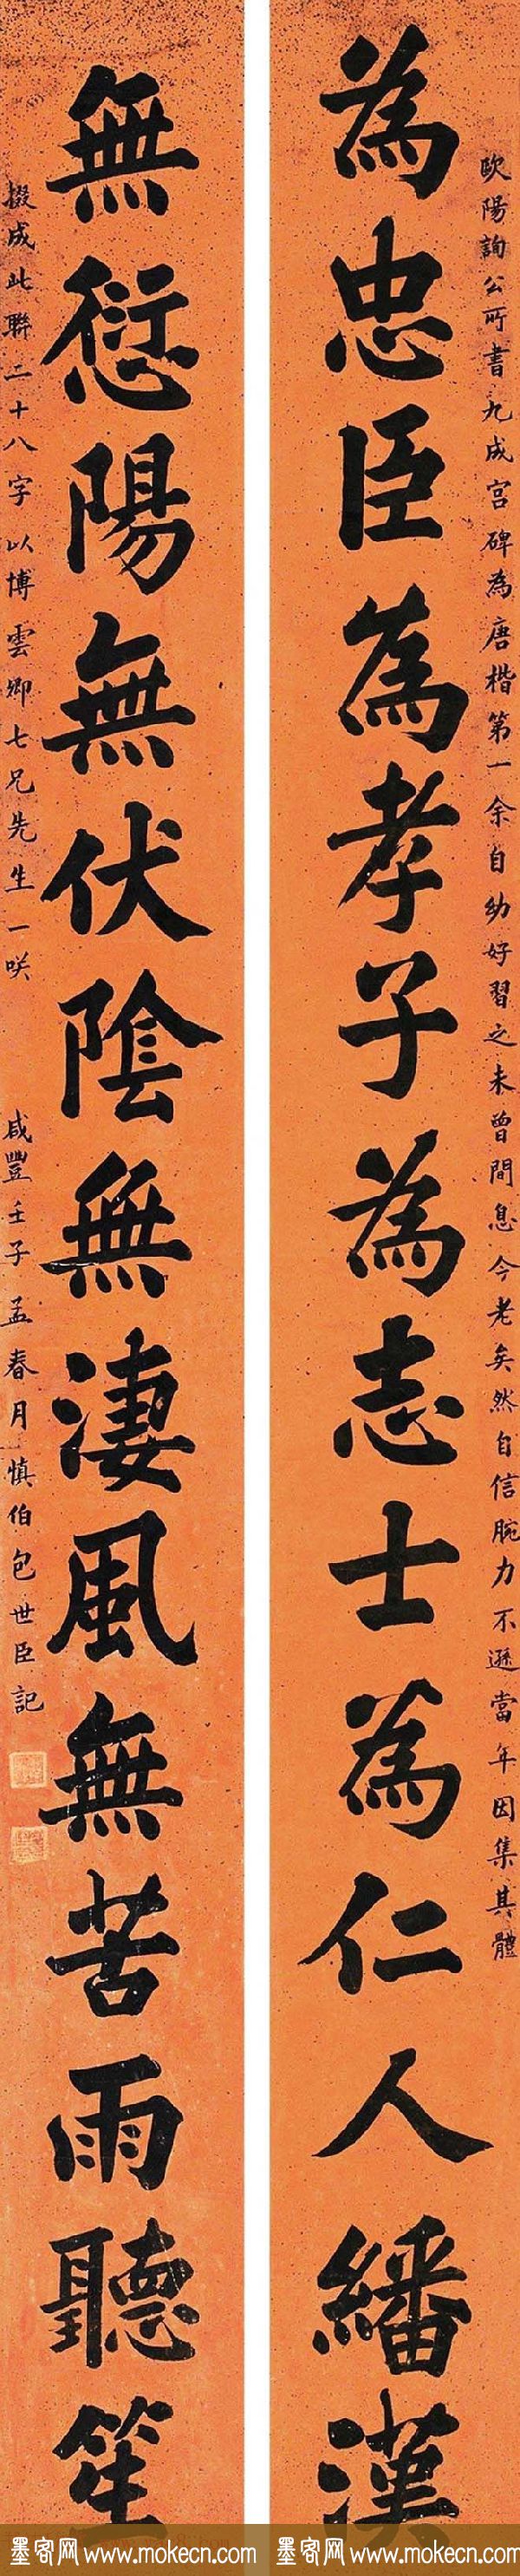 歐陽詢公所書九成宮碑為唐楷第一余自幼好習之未曾間息今老矣然自信腕力不遜當年因集其體
為忠臣為孝子為志士為仁人繙漢
無愆陽無伏陰無淒風無苦雨聽笙
掇成此聯二十八字以博雲卿七兄先生一咲 咸豐壬子孟春月慎伯包世臣記
墨客网 www.mokecn.com 墨客网 www.mokecn.com